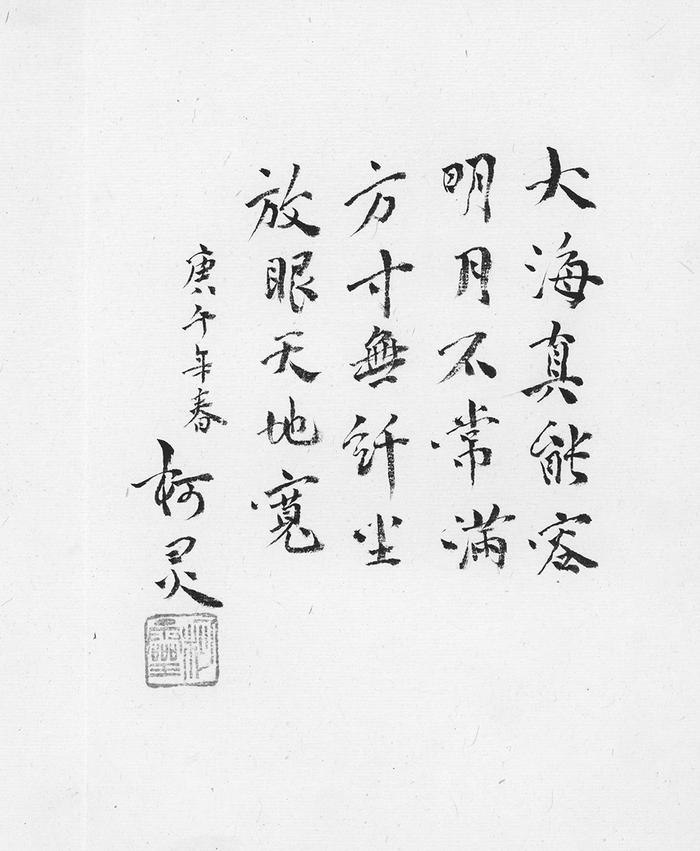 大海真能容
明月不常滿
方寸無纤尘
放眼天地寬
庚午年春
柯灵
柯靈